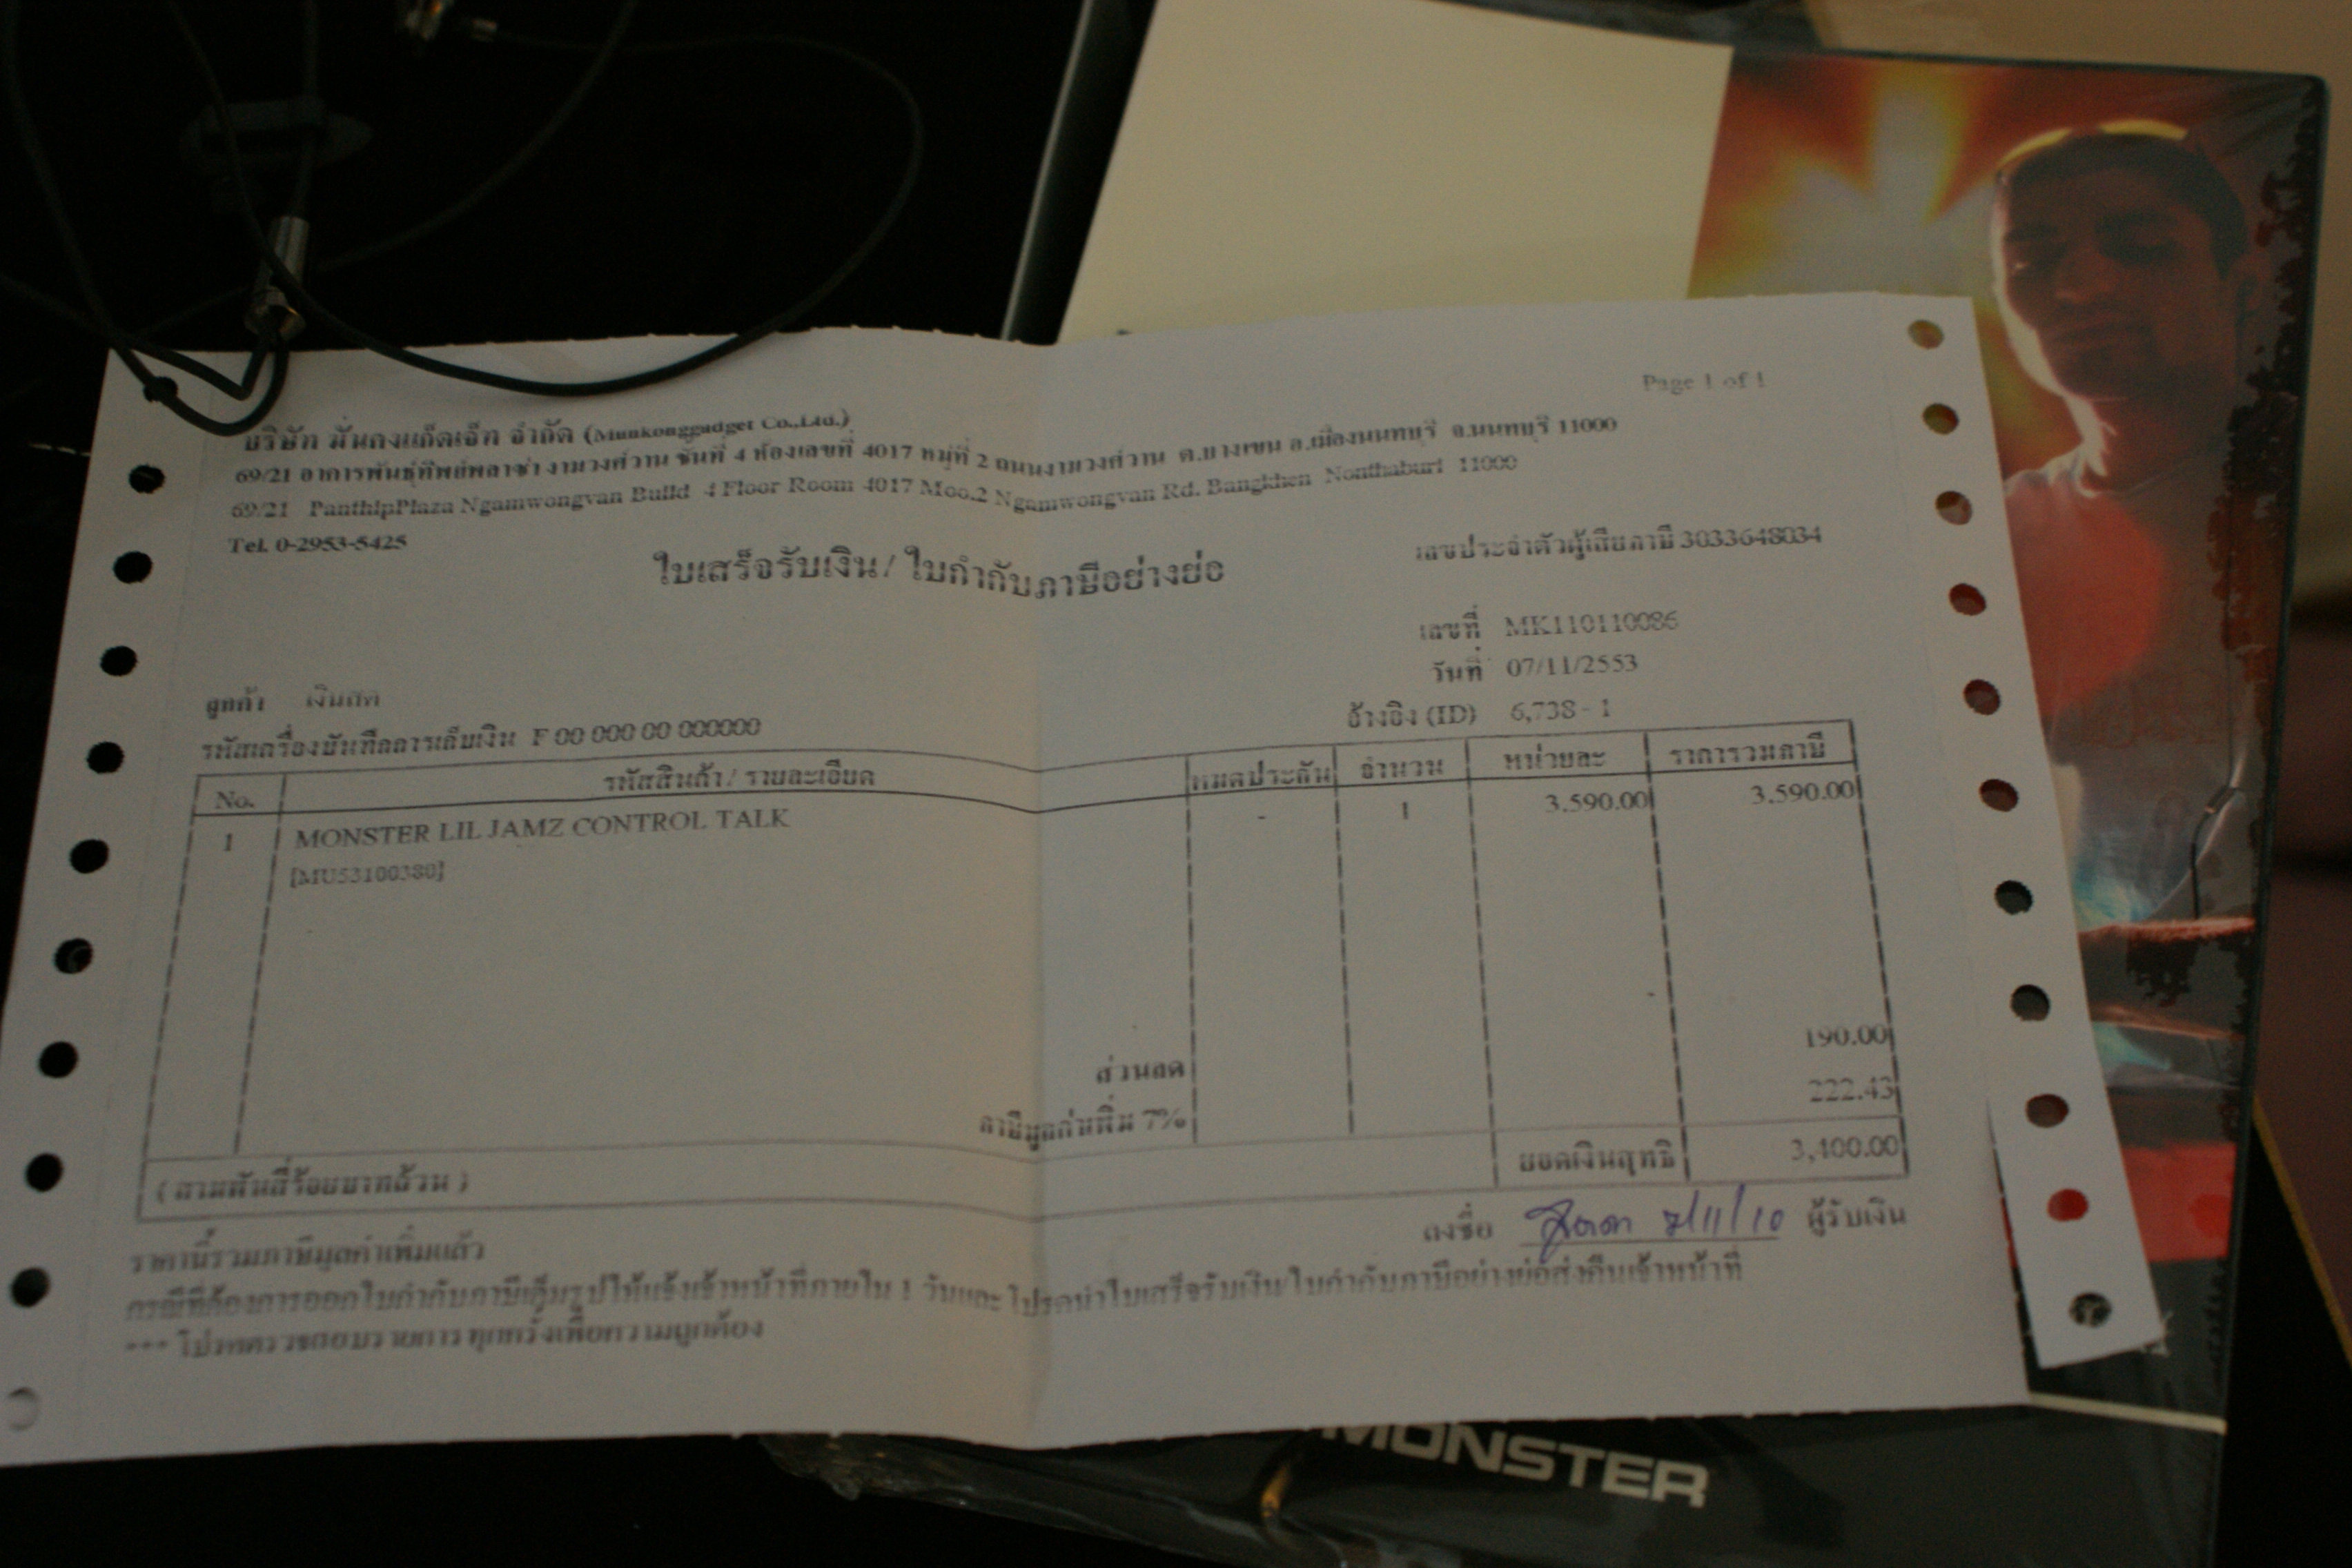 Page 1 of 1
บริษัท มั่นคงแก็ดเจ็ท จำกัด (Munkonggadget Co.,Ltd.)
69/21 อาคารพันธุ์ทิพย์พลาซ่า งามวงศ์วาน ชั้นที่ 4 ห้องเลขที่ 4017 หมู่ที่ 2 ถนนงามวงศ์วาน ต.บางเขน อ.เมืองนนทบุรี จ.นนทบุรี 11000
69/21 PanthipPlaza Ngamwongvan Build 4 Floor Room 4017 Moo.2 Ngamwongvan Rd. Bangkhen Nonthaburi 11000
Tel. 0-2953-5425
เลขประจำตัวผู้เสียภาษี 3033648034
ใบเสร็จรับเงิน/ ใบกำกับภาษีอย่างย่อ
เลขที่ MK110110086
วันที่ 07/11/2553
ลูกค้า เงินสด
อ้างอิง (ID) 6,738 - 1
รหัสเครื่องบันทึกการเก็บเงิน F 00 000 00 000000
No. รหัสสินค้า / รายละเอียด หมดประกัน จำนวน หน่วยละ ราคารวมภาษี
1 MONSTER LIL JAMZ CONTROL TALK - 1 3.590.00 3.590.00
[MU53100380]
ส่วนลด 190.00
ภาษีมูลค่าเพิ่ม 7% 222.43
( สามพันสี่ร้อยบาทถ้วน ) ยอดเงินสุทธิ 3,400.00
ลงชื่อ 7/11/10 ผู้รับเงิน
ราคานี้รวมภาษีมูลค่าเพิ่มแล้ว
กรณีที่ต้องการออกใบกำกับภาษีเต็มรูปให้แจ้งเจ้าหน้าที่ภายใน 1 วันและ โปรดนำใบเสร็จรับเงิน/ใบกำกับภาษีอย่างย่อส่งคืนเจ้าหน้าที่
*** โปรดตรวจสอบรายการทุกครั้งเพื่อความถูกต้อง
MONSTER